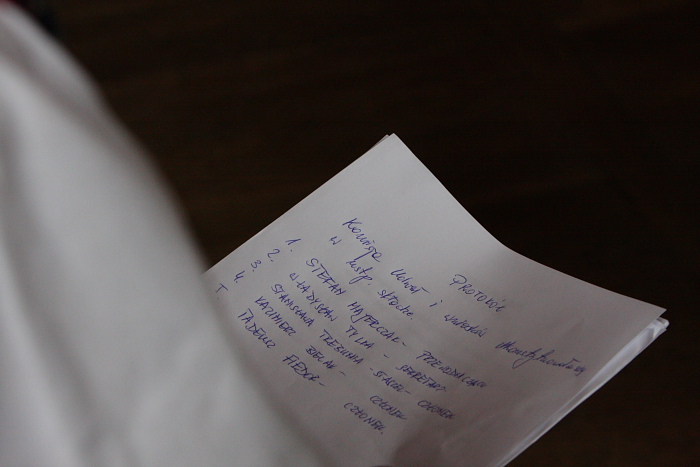 PROTOKÓŁ
Komisja Uchwał i Wniosków ukonstytuowała się
w nastp. składzie.
1. STEFAN MAJERCZAK - PRZEWODNICZĄCY
2. WŁADYSŁAW TYLKA - SEKRETARZ
3. STANISŁAWA TREBUNIA - STASZEL - CZŁONEK
4. KAZIMIERZ BIELAK - CZŁONEK
TADEUSZ FIEDOR - CZŁONEK.